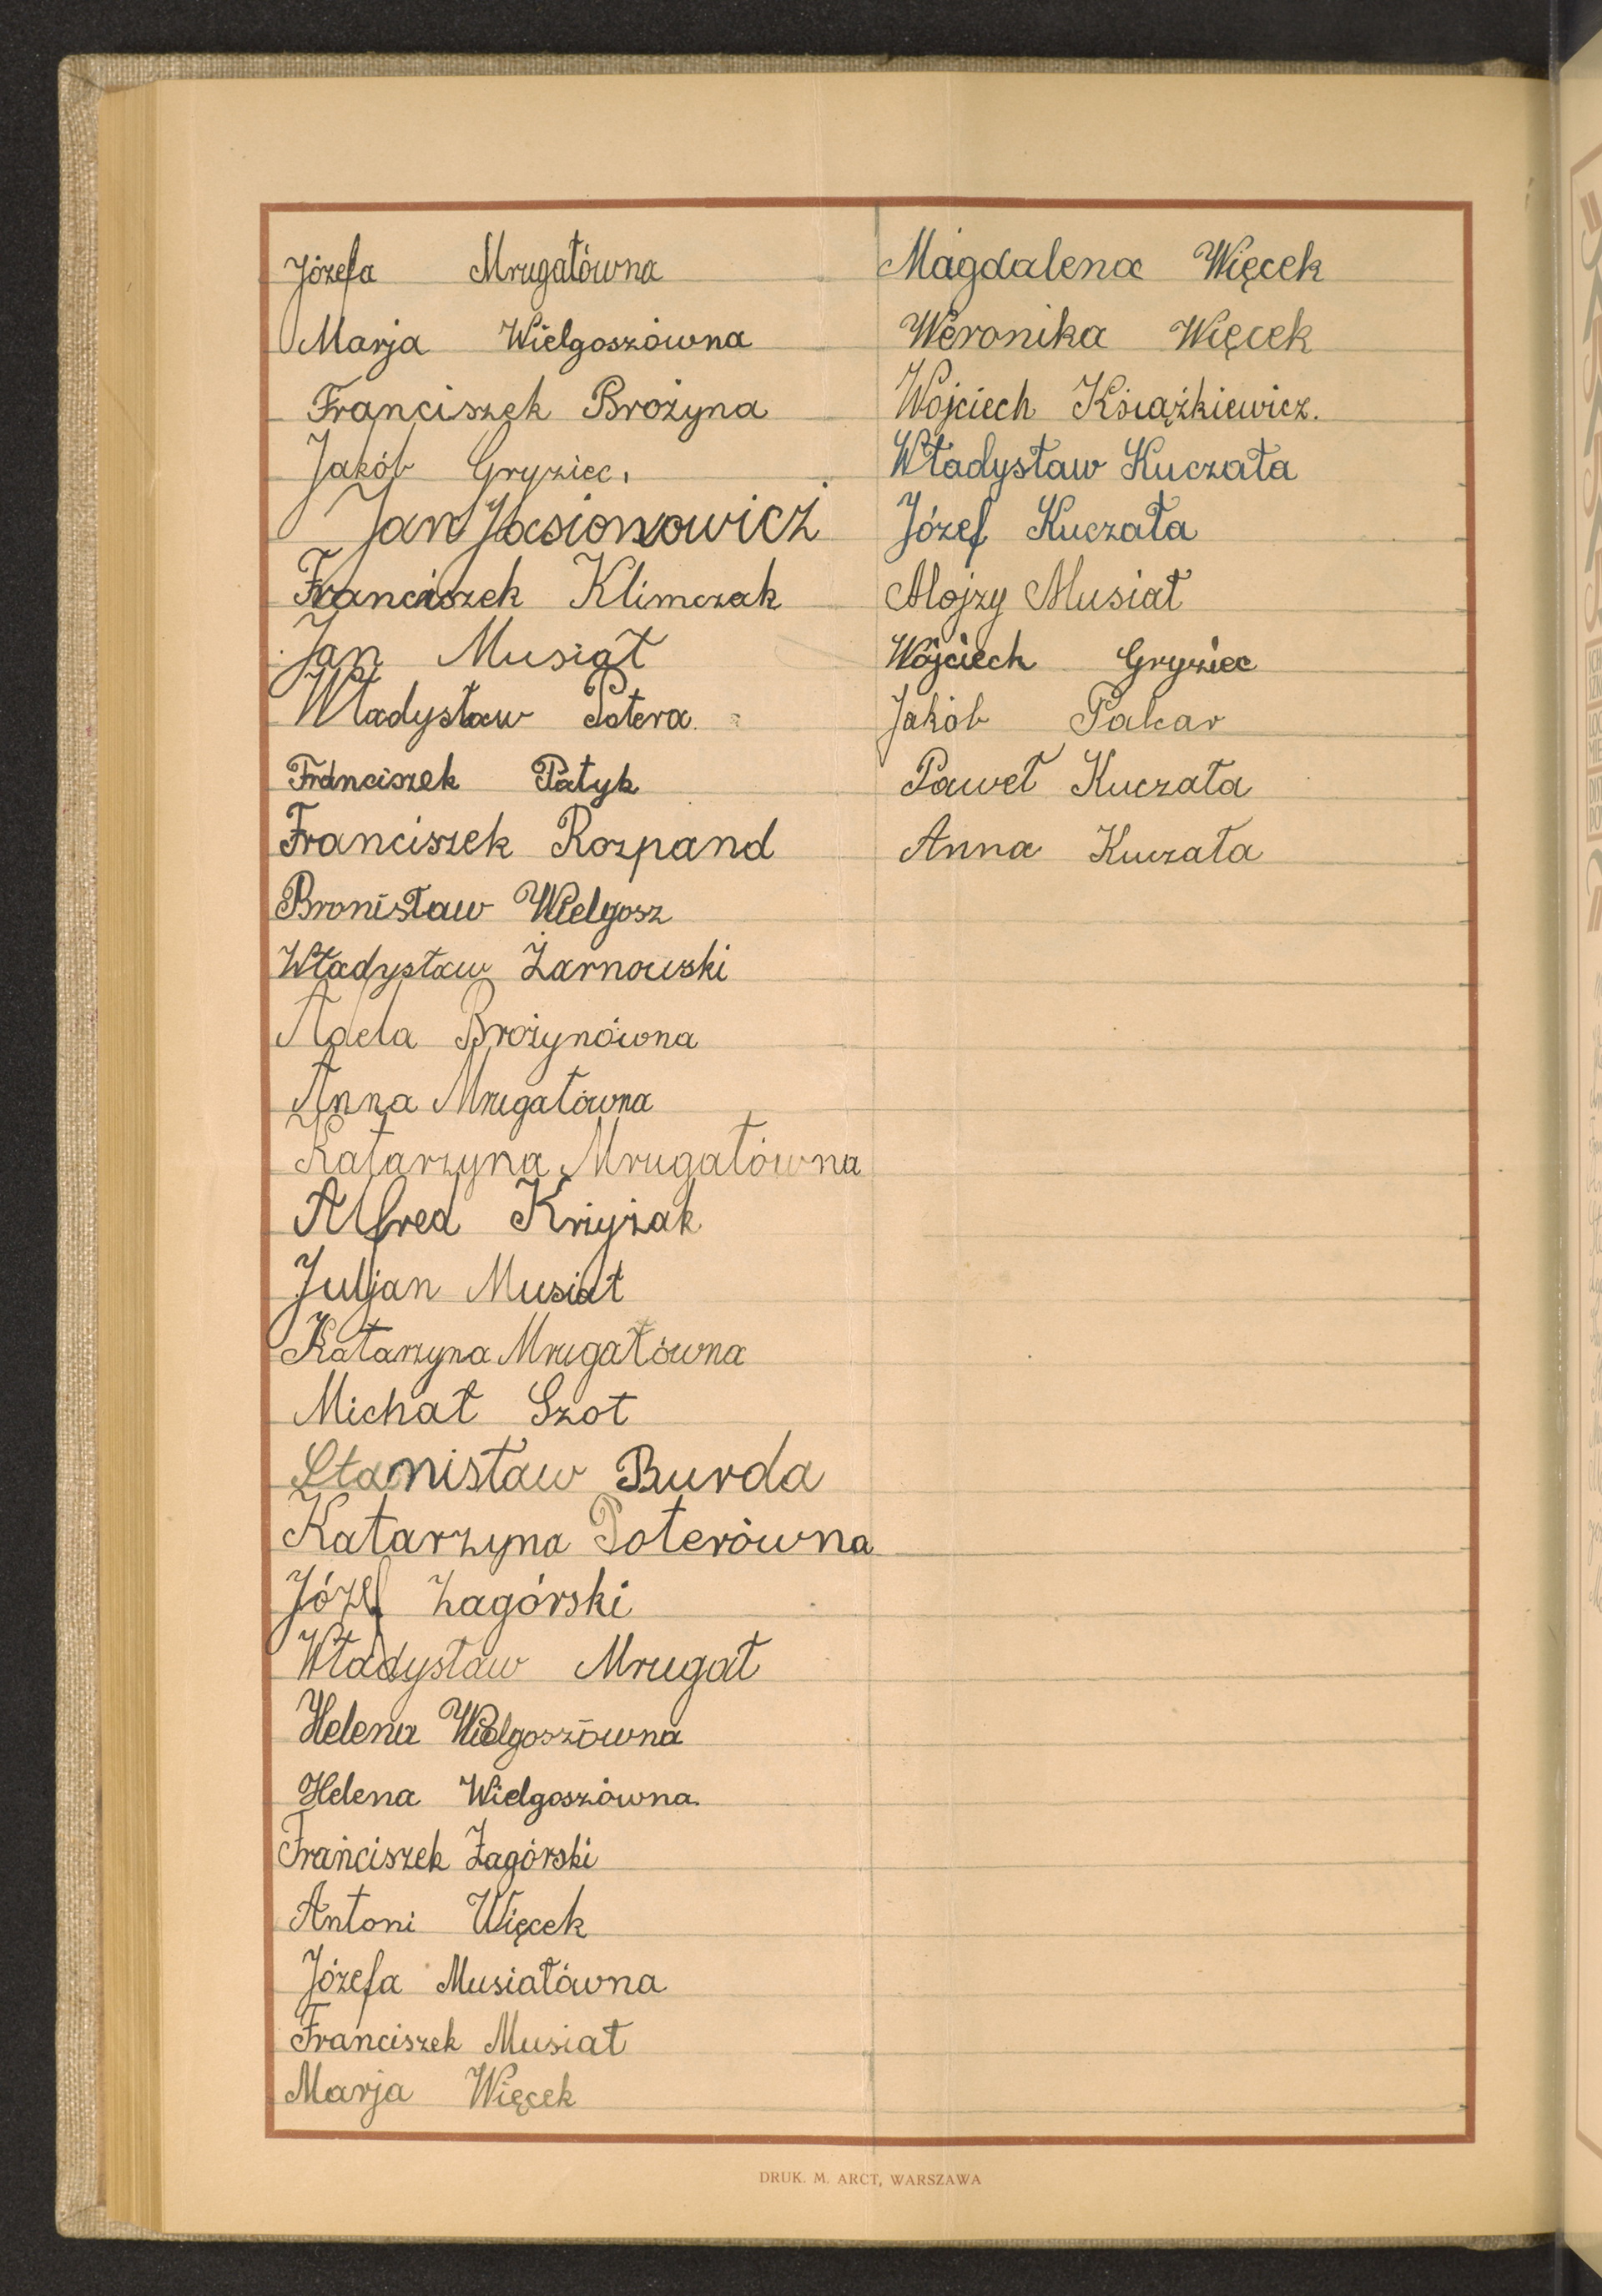 Józefa Mrugałówna
Marja Wielgoszówna
Franciszek Brożyna
Jakób Gryziec.
Jan Jasionowicz
Franciszek Klimczak
Jan Musiał
Władysław Potera.
Franciszek Patyk
Franciszek Rozpand
Bronisław Wielgosz
Władysław Żarnowski
Adela Brożynówna
Anna Mrugałówna
Katarzyna Mrugałówna
Alfred Krzyżak
Juljan Musiał
Katarzyna Mrugałówna
Michał Szot
Stanisław Burda
Katarzyna Poterówna
Józef Zagórski
Władysław Mrugał
Helena Wielgoszówna
Helena Wielgoszówna.
Franciszek Zagórski
Antoni Więcek
Józefa Musiałówna
Franciszek Musiał
Marja Więcek
Magdalena Więcek
Weronika Więcek
Wojciech Książkiewicz.
Władysław Kuczała
Józef Kuczała
Alojzy Musiał
Wojciech Gryziec
Jakób Pakar
Paweł Kuczała
Anna Kuczała
DRUK. M. ARCT, WARSZAWA